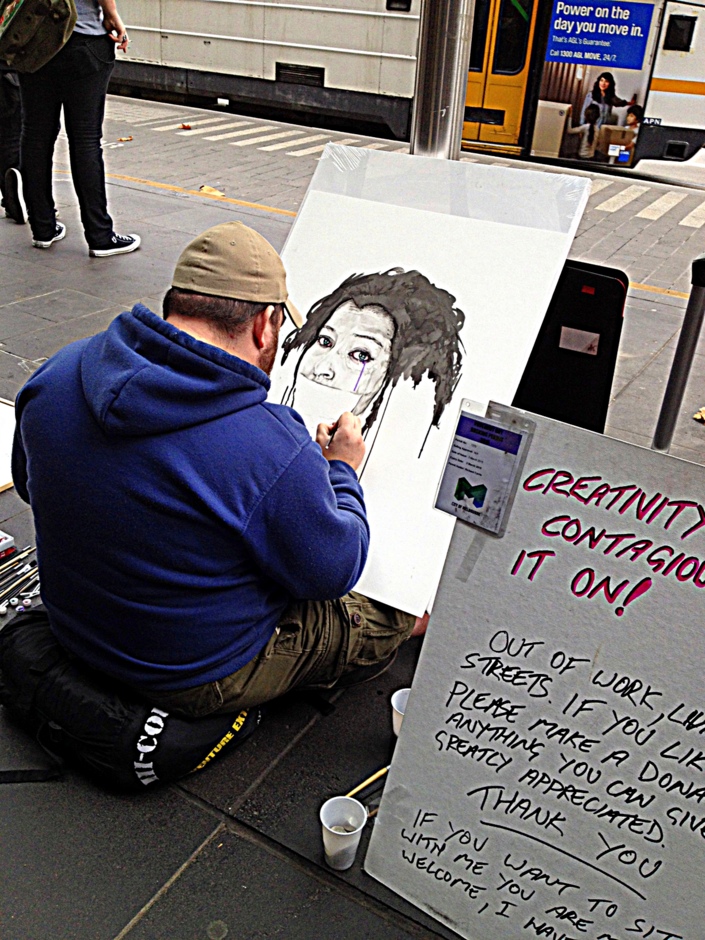 Power on the
day you move in.
That's AGL's Guarantee.
Call 1300 AGL MOVE, 24/7.
APN
CREATIVITY
CONTAGIOU
IT ON!
OUT OF WORK, LIV
STREETS. IF YOU LIK
PLEASE MAKE A DONA
ANYTHING YOU CAN GIVE
GREATLY APPRECIATED.
THANK YOU
IF YOU WANT TO SIT
WITH ME YOU ARE M
WELCOME, I HAVE
HI-CO